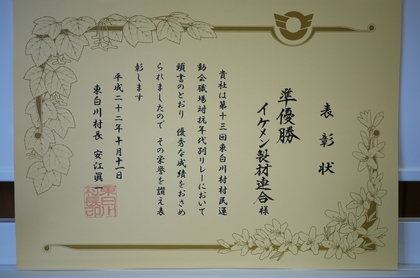 表彰状
準優勝
イケメン製材連合様
貴社は第十三回東白川村村民運
動会職場対抗年代別リレーにおいて
頭書のとおり 優秀な成績をおさめ
られましたので その栄誉を讃え表
彰します
平成二十二年十月十一日
東白川村長 安江眞一